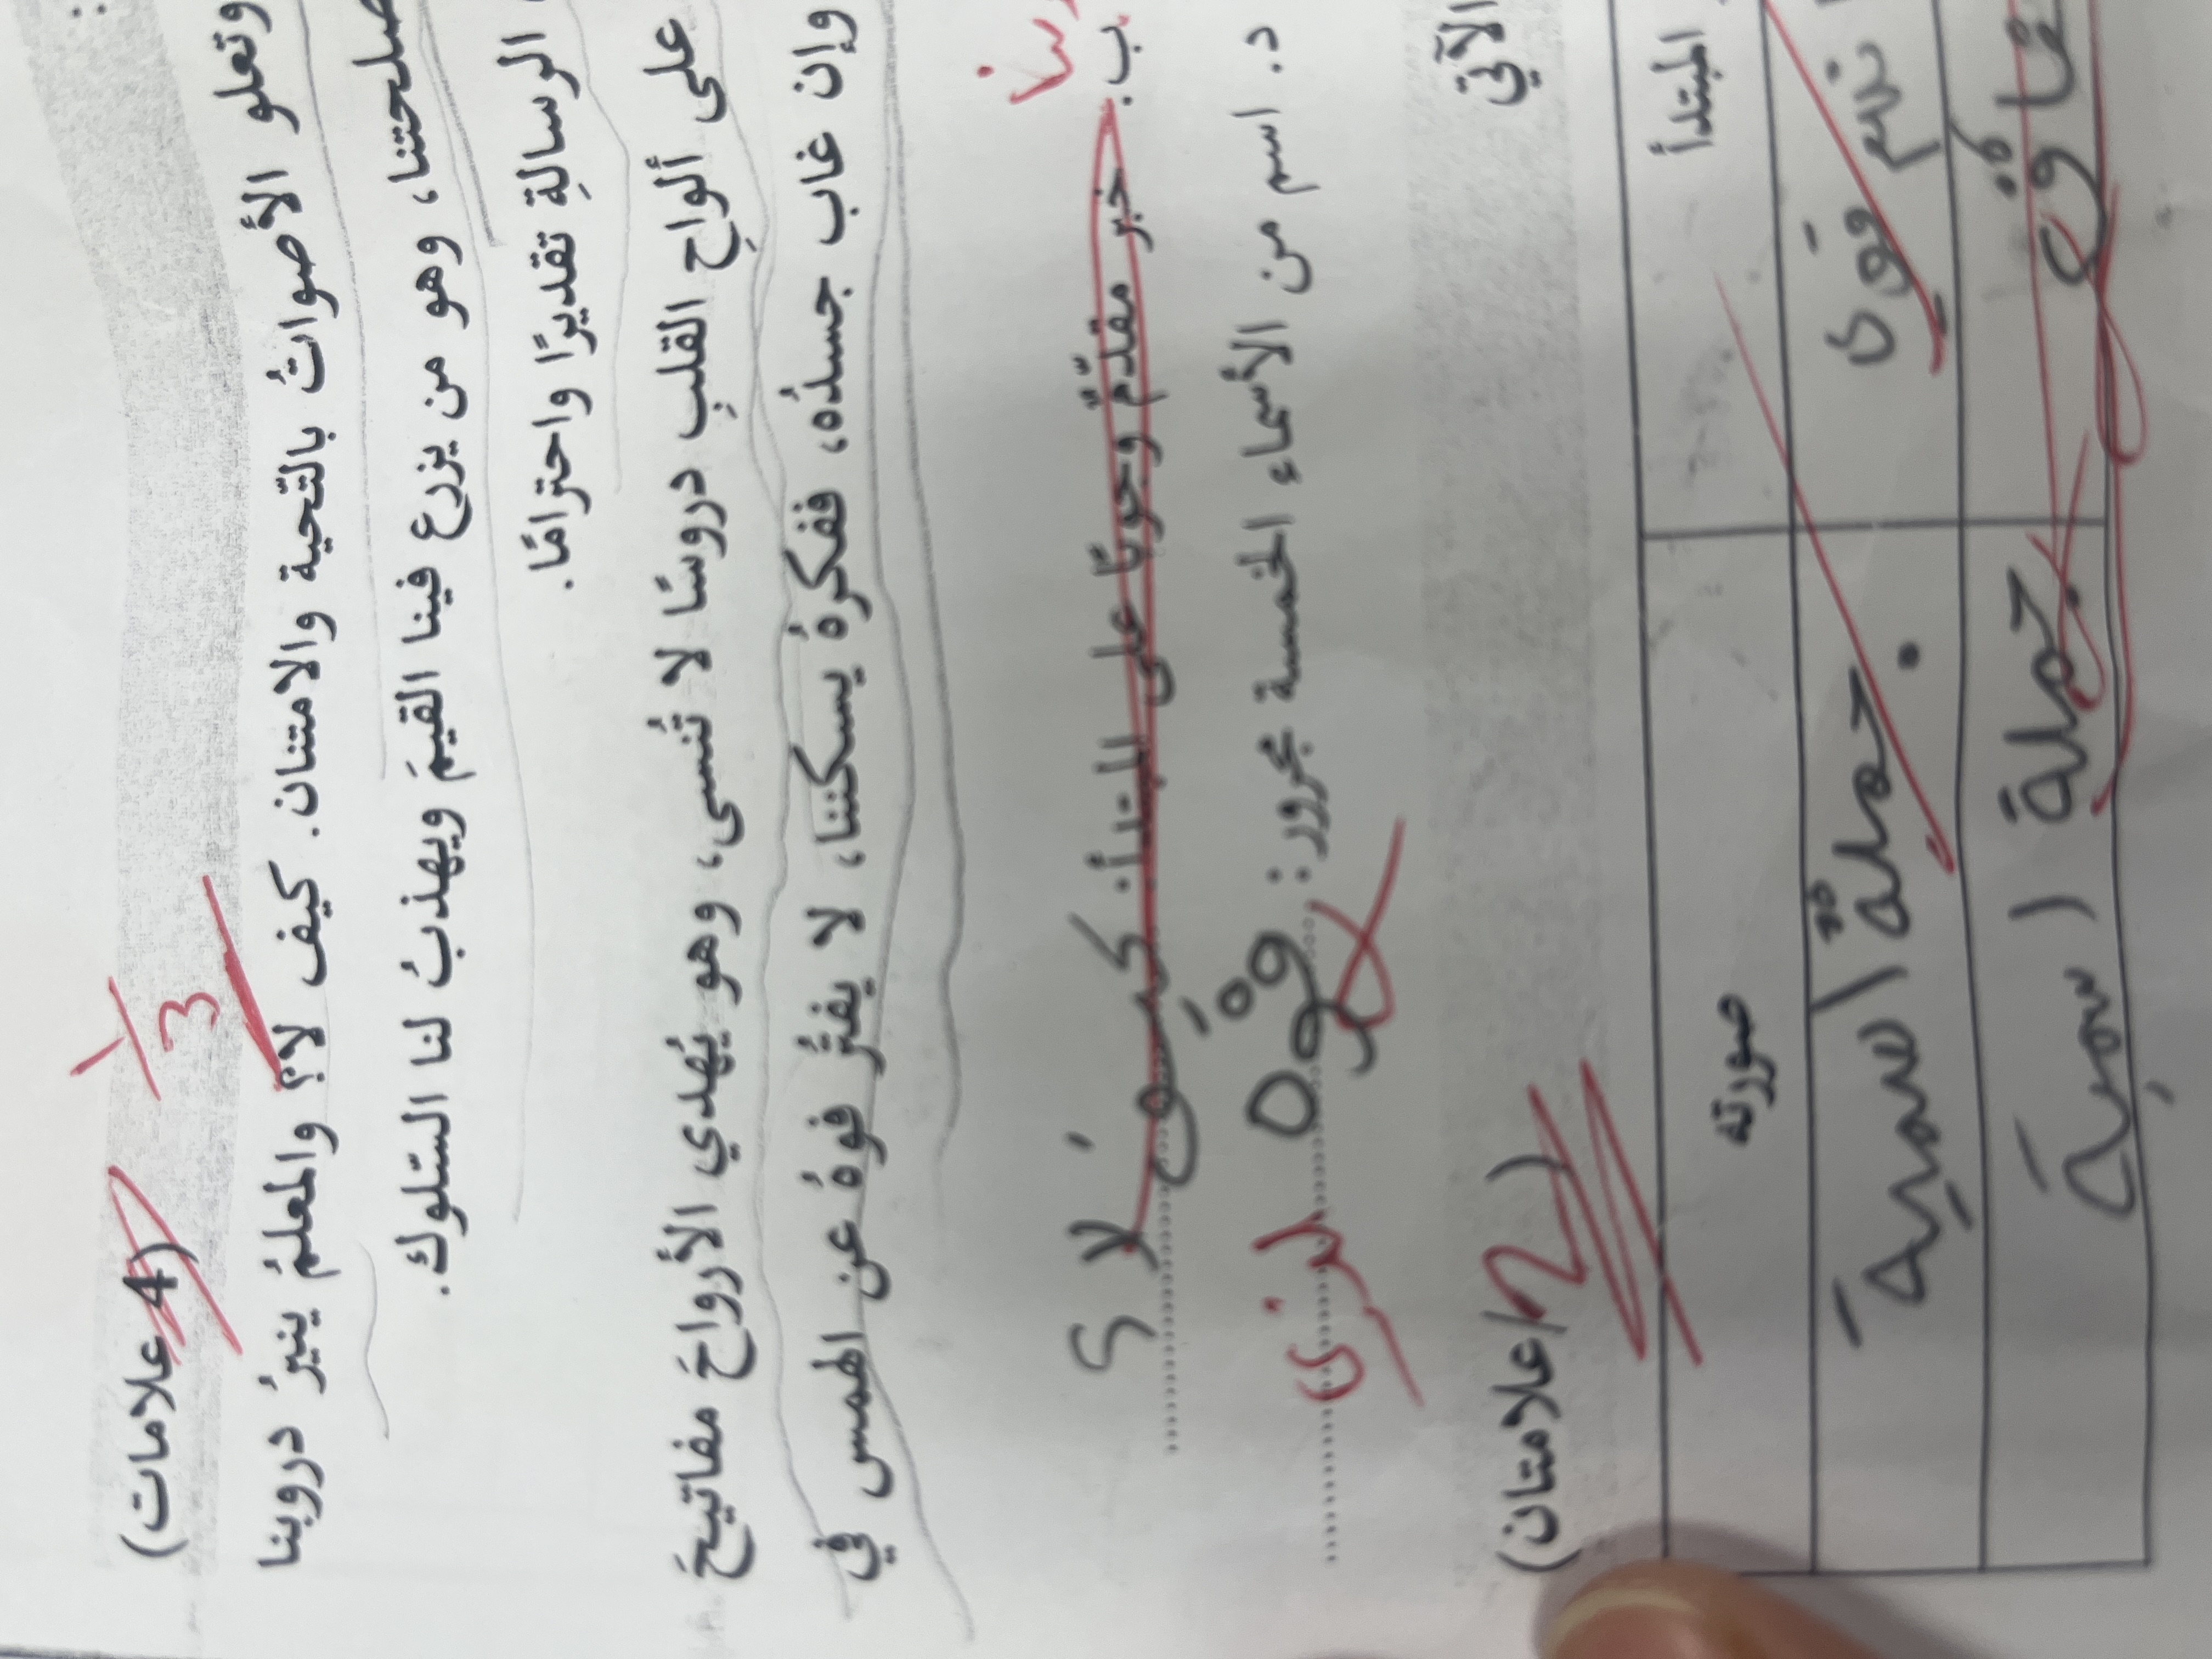 (4 علامات)
1/3
وتعلو الأصواتُ بالتّحية والامتنان. كيف لا؟ والمعلمُ ينيرُ دروبنا
صلحتنا، وهو من يزرع فينا القيمَ ويهذبُ لنا السّلوك.
الرسالةِ تقديرًا واحترامًا.
على ألواحِ القلبِ دروسًا لا تُنسى، وهو يُهدي الأرواحَ مفاتيحَ
وإن غاب جسدُه، ففكرهُ يسكننا، لا يفترُ فوهُ عن الهمس في
ب. خبر مقدّمٌ وجوبًا على المبتدأ. كيف لا؟
د. اسم من الأسماء الخمسة مجرور: فوه
لذي
الآتي (علامتان)
المبتدأ صورته
جملة اسمية
جملة اسمية